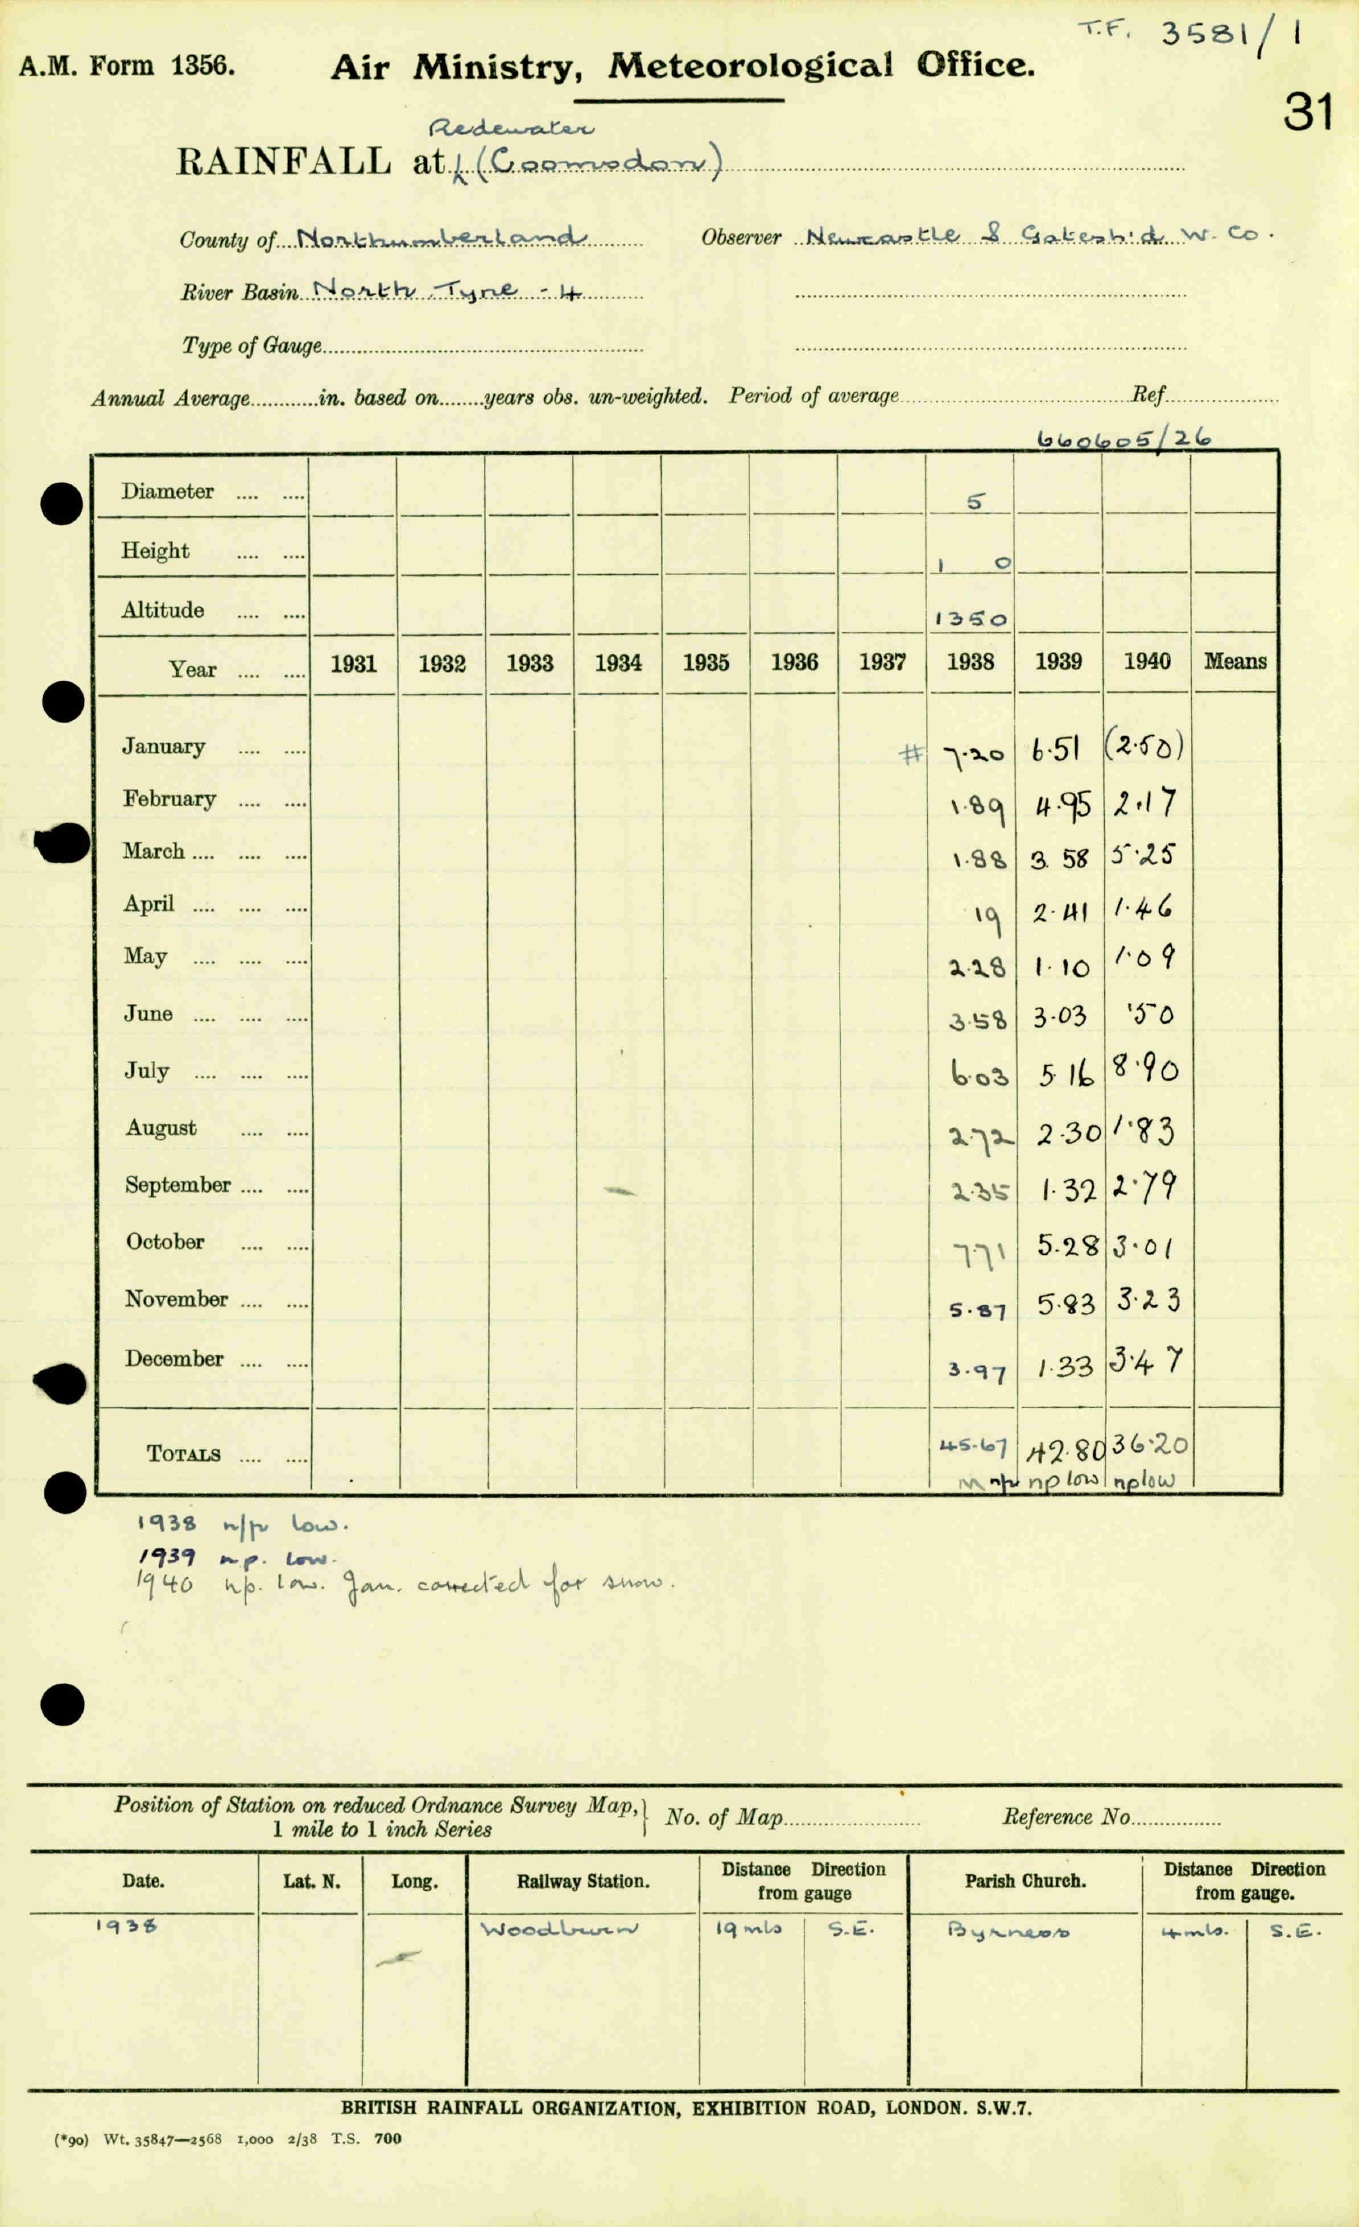 T.F. 3581/1
A.M. Form 1356. Air Ministry, Meteorological Office.
31
Redewater
RAINFALL at (Coomsdon)
County of Northumberland Observer Newcastle & Gateshd W. Co.
River Basin North Tyne - 4
Type of Gauge
Annual Average in. based on years obs. un-weighted. Period of average Ref.
660605/26
Diameter 5
Height 1 0
Altitude 1350
Year 1931 1932 1933 1934 1935 1936 1937 1938 1939 1940 Means
January # 7.20 6.51 (2.50)
February 1.89 4.95 2.17
March 1.88 3.58 5.25
April 19 2.41 1.46
May 2.28 1.10 1.09
June 3.58 3.03 .50
July 6.03 5.16 8.90
August 2.72 2.30 1.83
September 2.35 1.32 2.79
October 7.71 5.28 3.01
November 5.87 5.83 3.23
December 3.97 1.33 3.47
TOTALS 45.67 42.80 36.20
np low np low
1938 n/p low.
1939 n.p. low.
1940 np. low. Jan. corrected for snow.
Position of Station on reduced Ordnance Survey Map, No. of Map Reference No.
1 mile to 1 inch Series
Date. Lat. N. Long. Railway Station. Distance Direction from gauge Parish Church. Distance Direction from gauge.
1938 Woodburn 19 mls S.E. Byrness 4 mls. S.E.
BRITISH RAINFALL ORGANIZATION, EXHIBITION ROAD, LONDON. S.W.7.
(*90) Wt. 35847—2568 1,000 2/38 T.S. 700